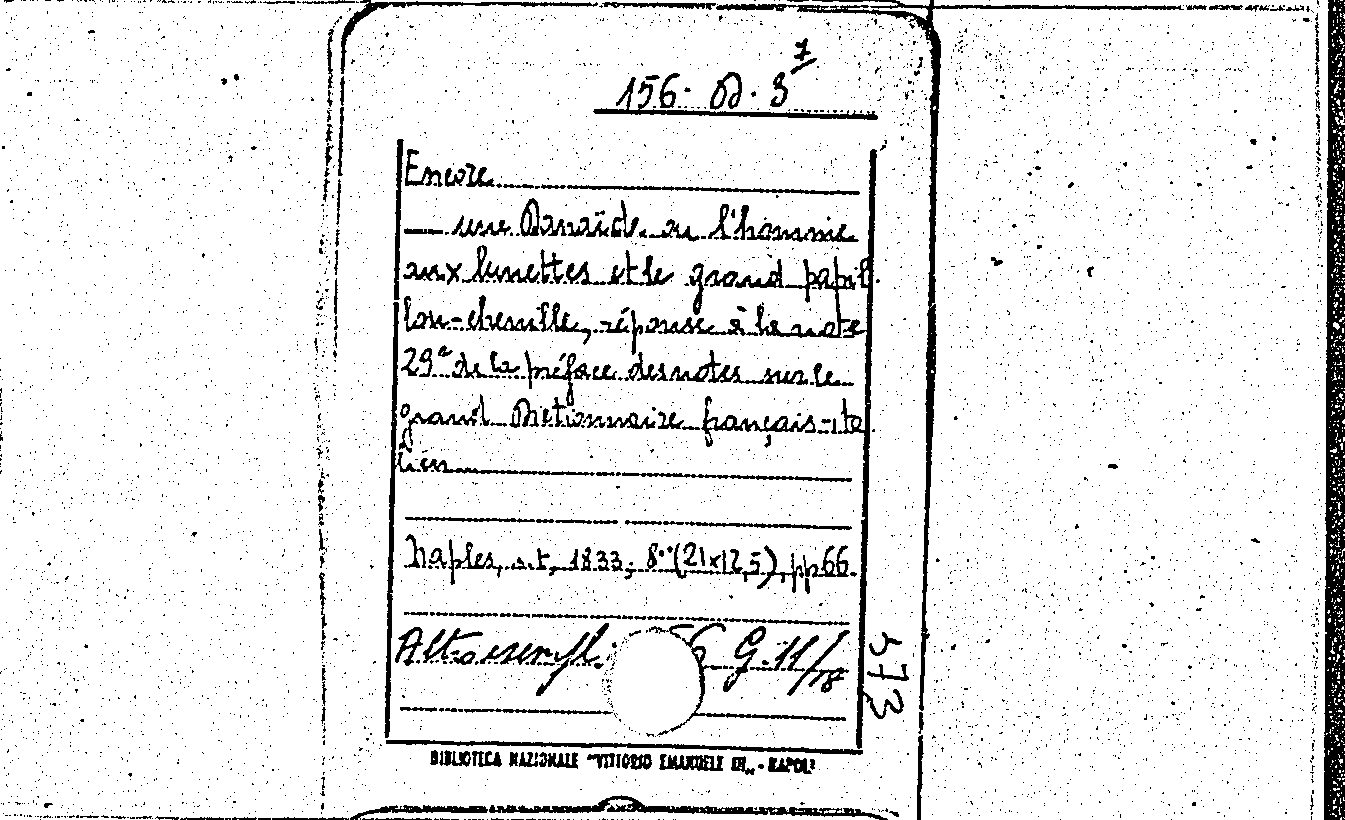 156. D. 3 7
Encore
— une Danaïde ou l'homme
aux lunettes et le grand papil
lon-chenille, réponse à la note
29ª de la préface des notes sur le
grand Dictionnaire français-ita
lien
Naples, s.t., 1833; 8°(21x12,5), pp 66.
Altro esempl. 56 G. 11/18
573
BIBLIOTECA NAZIONALE "VITTORIO EMANUELE III" - NAPOLI